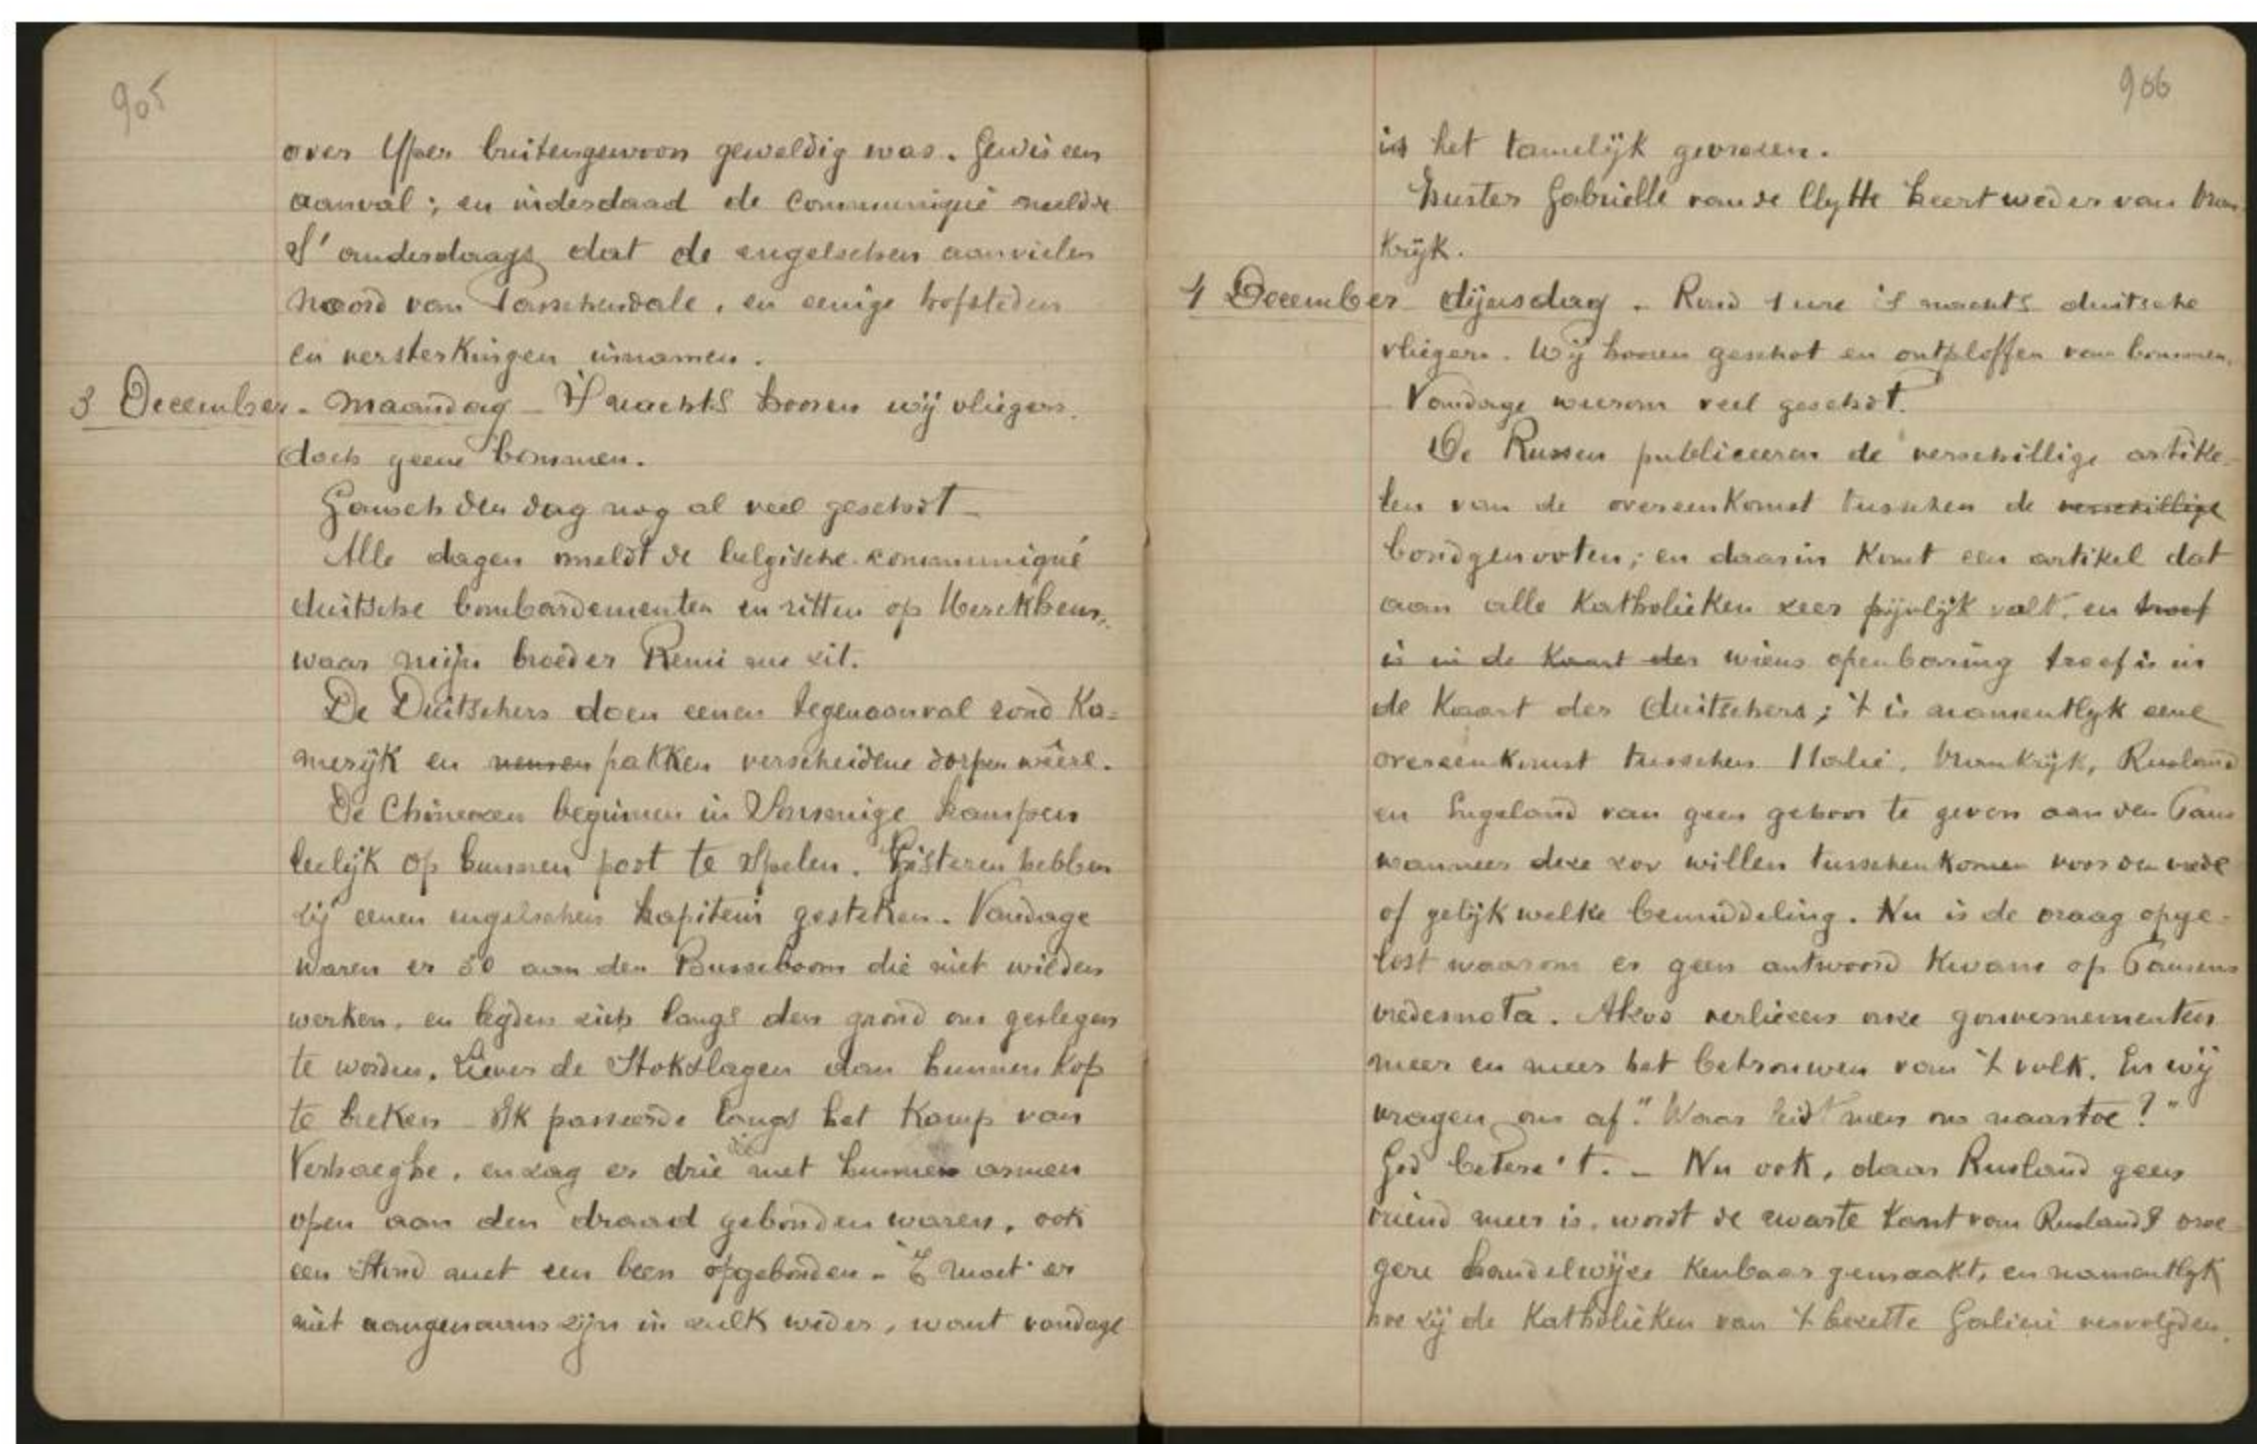 905
over Yper buitengewoon geweldig was. Gewis een
aanval; en inderdaad de communiqué meldde
S' anderdaags dat de engelschen aanvielen
noord van Passchendale, en eenige hofsteden
en versterkingen innamen.
3 December - Maandag - 'S nachts hooren wij vliegers
doch geene bommen.
Gansch den dag nog al veel geschot -
Alle dagen meldt de belgische communiqué
duitsche bombardementen en ritten op Merckhem,
waar mijn broeder Remi nu zit.
De Duitschers doen eenen tegenaanval rond Ka=
merijk en nemen pakken verscheidene dorpen wêere.
De Chineezen beginnen in sommige kampen
leelijk op hunnen poot te spelen. Gisteren hebben
zij eenen engelschen kapitein gesteken. Vandage
waren er 30 aan den Busseboom die niet wilden
werken, en legden zich langs den grond om geslegen
te worden. Liever de Stokslagen dan hunnen kop
te breken - Ik passeerde langs het kamp van
Verhaeghe, en zag er drie die met hunnen armen
open aan den draad gebonden waren, ook
een Stond met een been opgebonden - 't moet er
niet aangenaam zijn in zulk weder, want vandage
906
is het tamelijk gevrozen.
Zuster Gabrielle van de Clytte keert weder van Vran
krijk.
4 December dijnsdag - Rond 1 ure 's nachts duitsche
vliegers. Wij hooren geschot en ontploffen van bommen.
Vandage weerom veel geschot.
De Russen publiceeren de verschillige artike-
len van de overeenkomst tusschen de verschillige
bondgenooten; en daarin komt een artikel dat
aan alle Katholieken zeer pijnlijk valt, en troef
is in de kaart der wiens openbaring troef is in
de kaart der duitschers; 't is namentlyk eene
overeenkomst tusschen Italië, Vrankrijk, Rusland
en Engeland van geen gehoor te geven aan den Paus
wanneer deze zou willen tusschenkomen voor den vrede
of gelijk welke bemiddeling. Nu is de vraag opge-
lost waarom er geen antwoord kwam op Pausens
vredesnota. Alzoo verliezen onze gouvernementen
meer en meer het betrouwen van 't volk. En wij
vragen ons af "Waar leidt men ons naartoe?"
God betere 't. - Nu ook, daar Rusland geen
vriend meer is, wordt de zwarte kant van Ruslands vroe
gere handelwijze kenbaar gemaakt, en namentlyk
hoe zij de Katholieken van 't bezette Galicië vervolgden.